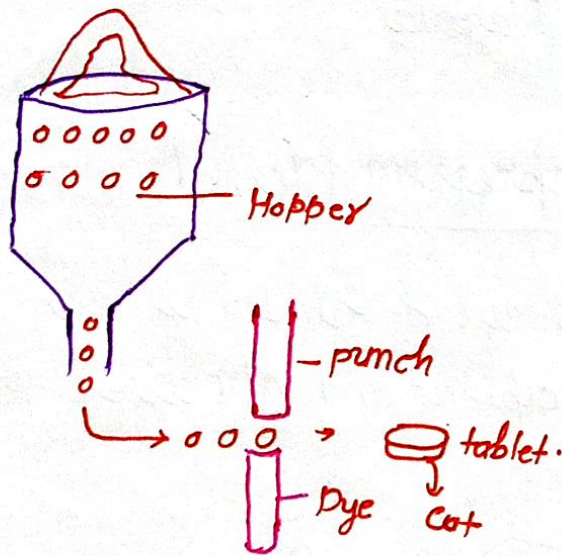 Hopper
punch
tablet.
Dye
Cat